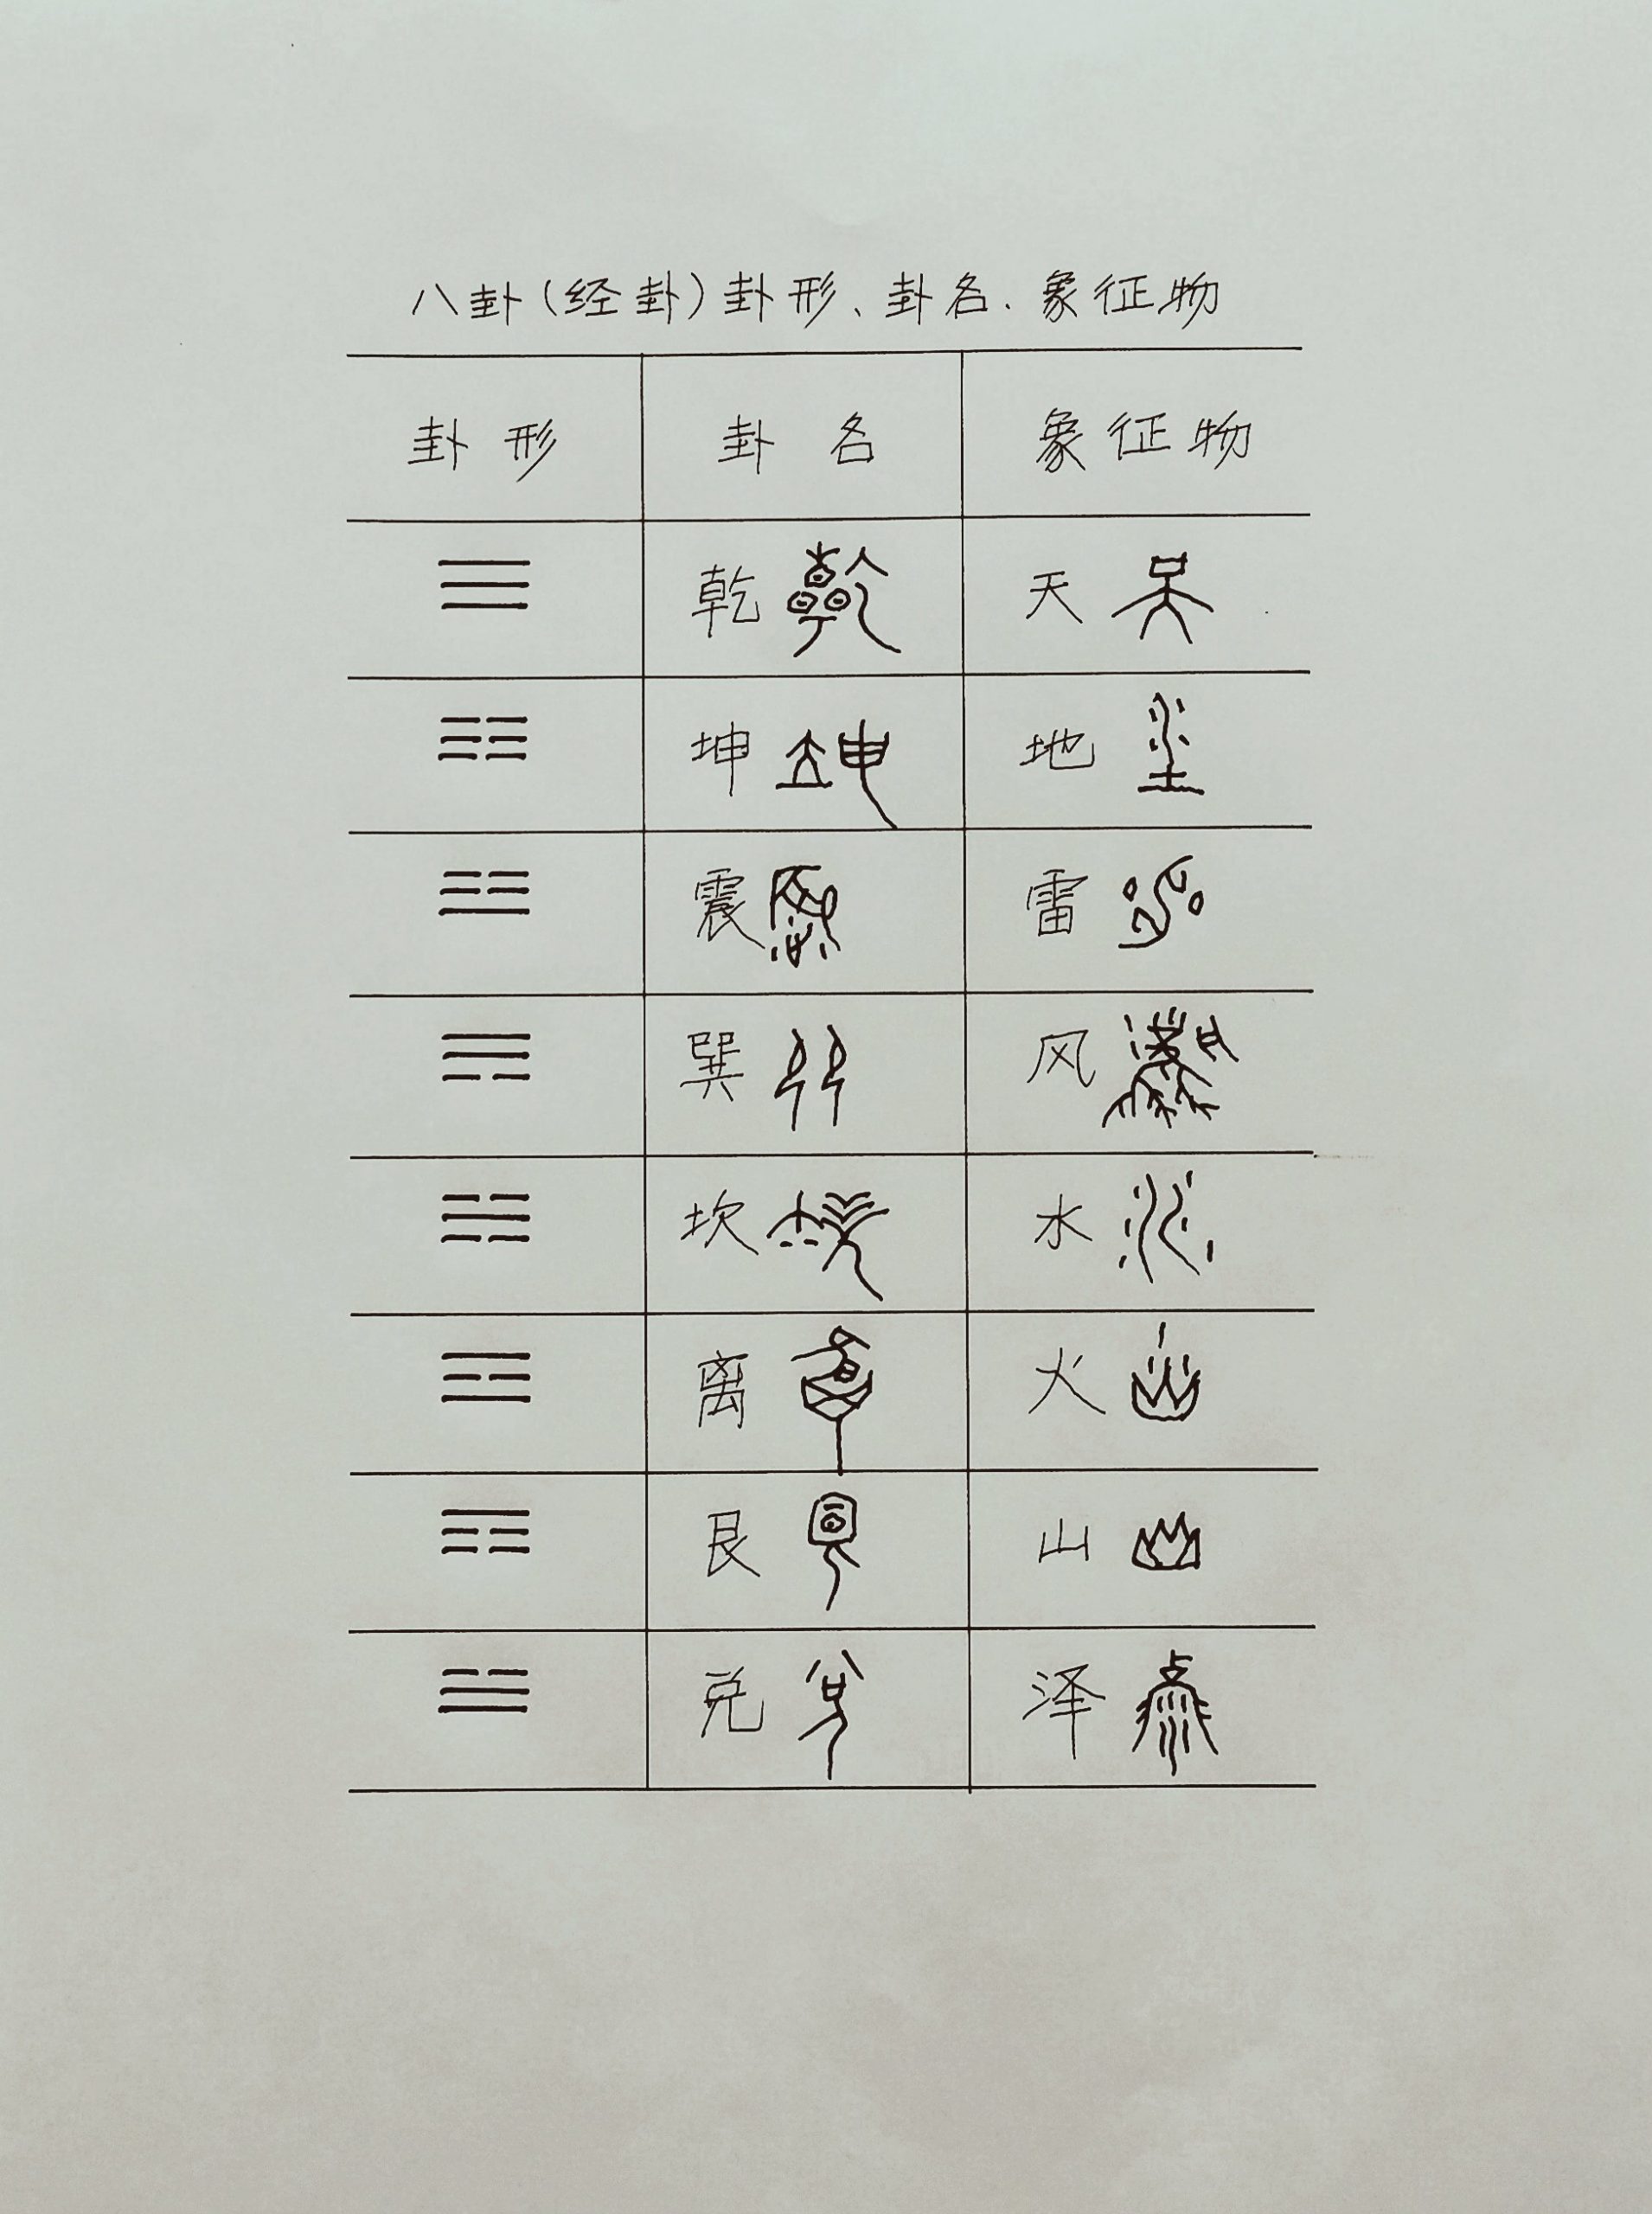 八卦(经卦)卦形、卦名、象征物
卦形 卦名 象征物
☰ 乾 天
☷ 坤 地
☳ 震 雷
☴ 巽 风
☵ 坎 水
☲ 离 火
☶ 艮 山
☱ 兑 泽